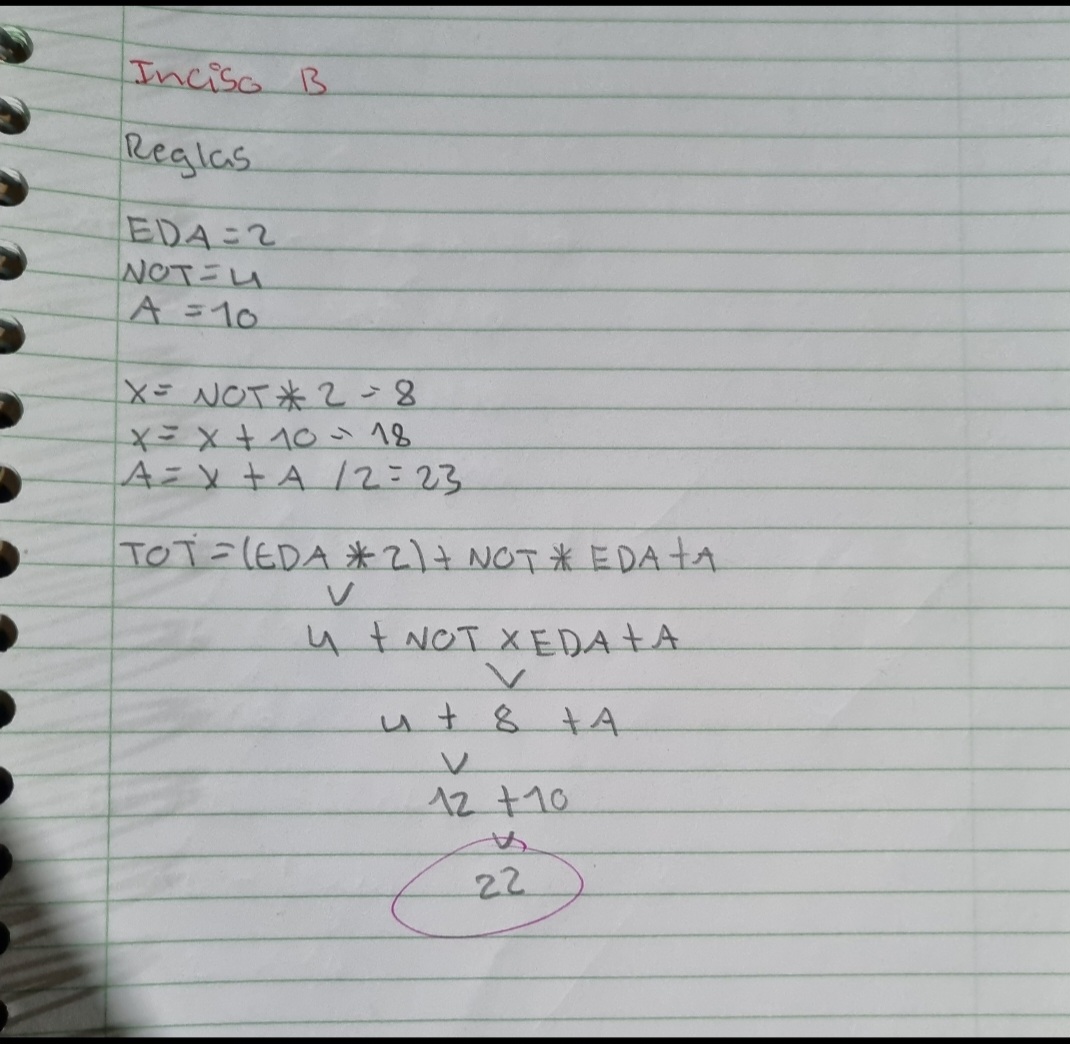 Inciso B
Reglas
EDA = 2
NOT = 4
A = 10
X = NOT * 2 = 8
X = X + 10 = 18
A = X + A / 2 = 23
TOT = (EDA * 2) + NOT * EDA + A
4 + NOT X EDA + A
4 + 8 + A
12 + 10
22